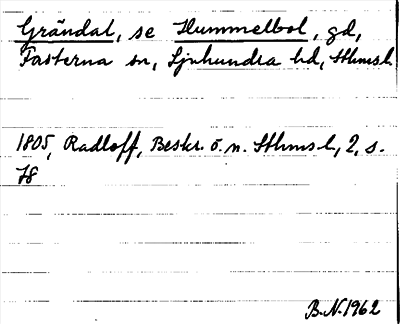 Grändal, se Hummelbol, gd,
Fasterna sn, Sjuhundra hd, Sthms l.
1805, Radloff, Beskr. ö. n. Sthms l., 2, s.
78
B.N. 1962